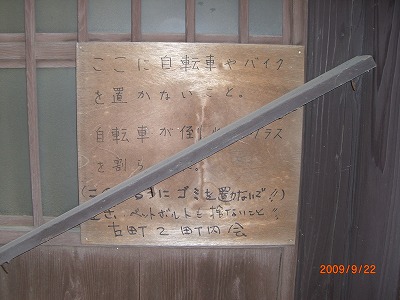 ここに自転車やバイク
を置かないこと。
自転車が倒 ガラス
を割ら
(こ にゴミを置かないで!!)
ペットボルトを捨ないこと!!
吉町2町内会
2009/9/22